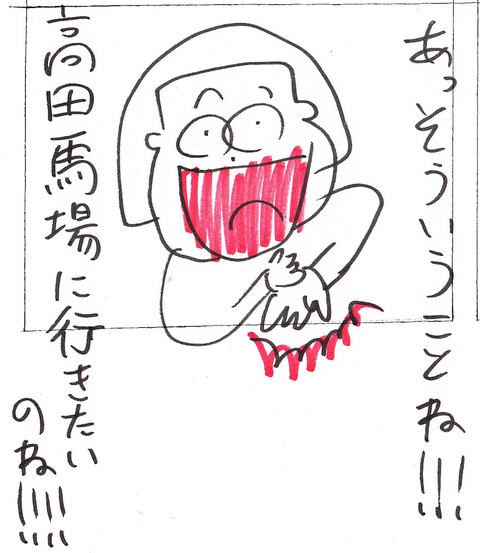 あっそういうことね!!!
高田馬場に行きたい
のね!!!!